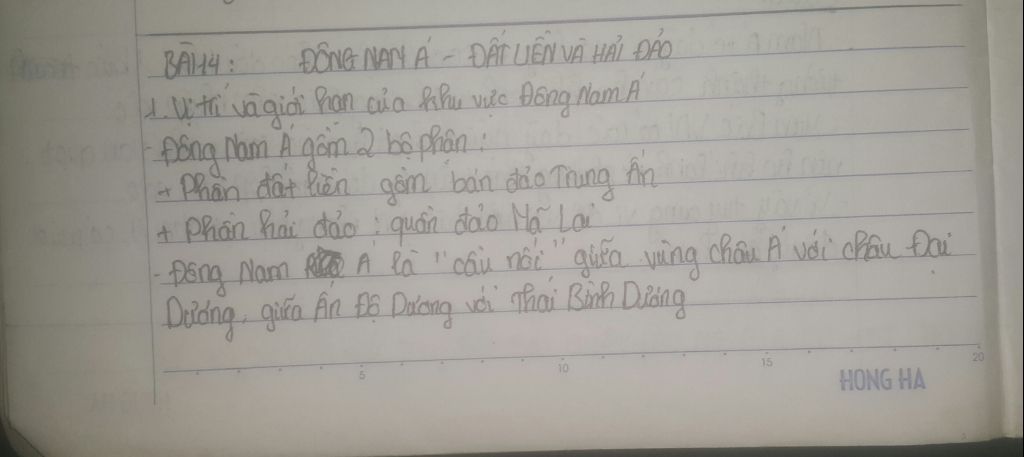 BÀI 14: ĐÔNG NAM Á - ĐẤT LIỀN VÀ HẢI ĐẢO
1. Vị trí và giới hạn của khu vực Đông Nam Á
- Đông Nam Á gồm 2 bộ phận:
+ Phần đất liền gồm bán đảo Trung Ấn
+ Phần hải đảo: quần đảo Mã Lai
- Đông Nam Á là "cầu nối" giữa vùng châu Á với châu Đại
Dương, giữa Ấn Độ Dương với Thái Bình Dương
5 10 15 20
HONG HA